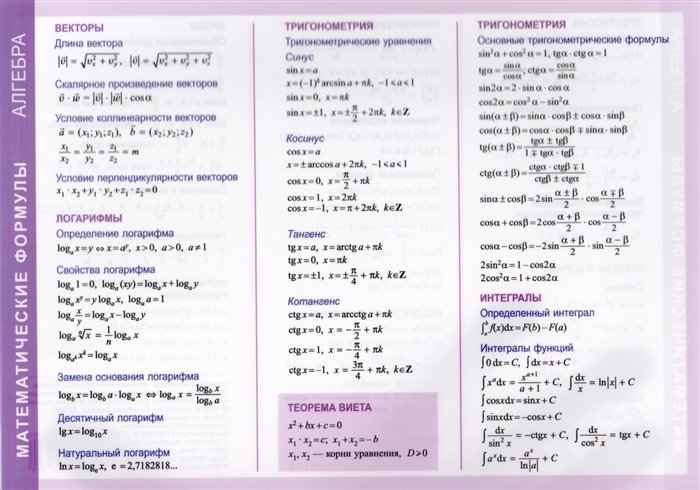 МАТЕМАТИЧЕСКИЕ ФОРМУЛЫ АЛГЕБРА
ВЕКТОРЫ
Длина вектора
|v̅| = √(vₓ² + vᵧ²), |v̅| = √(vₓ² + vᵧ² + v_z²)
Скалярное произведение векторов
v̅ · w̅ = |v̅| · |w̅| · cosα
Условие коллинеарности векторов
a̅ = (x₁; y₁; z₁), b̅ = (x₂; y₂; z₂)
x₁/x₂ = y₁/y₂ = z₁/z₂ = m
Условие перпендикулярности векторов
x₁ · x₂ + y₁ · y₂ + z₁ · z₂ = 0
ЛОГАРИФМЫ
Определение логарифма
logₐx = y ⇔ x = aʸ, x > 0, a > 0, a ≠ 1
Свойства логарифма
logₐ1 = 0, logₐ(xy) = logₐx + logₐy
logₐxʸ = y logₐx, logₐa = 1
logₐ x/y = logₐx − logₐy
logₐ ⁿ√x = 1/n logₐx
Замена основания логарифма
log_b x = log_b a · logₐx ⇔ logₐx = log_b x / log_b a
Десятичный логарифм
lg x = log₁₀x
Натуральный логарифм
ln x = logₑx, e = 2,7182818...
ТРИГОНОМЕТРИЯ
Тригонометрические уравнения
Синус
sin x = a
x = (−1)ᵏ arcsin a + πk, −1 < a < 1
sin x = 0, x = πk
sin x = ±1, x = ± π/2 + 2πk, k∈Z
Косинус
cos x = a
x = ± arccos a + 2πk, −1 < a < 1
cos x = 0, x = π/2 + πk
cos x = 1, x = 2πk
cos x = −1, x = π + 2πk, k∈Z
Тангенс
tg x = a, x = arctg a + πk
tg x = 0, x = πk
tg x = ±1, x = ± π/4 + πk, k∈Z
Котангенс
ctg x = a, x = arcctg a + πk
ctg x = 0, x = − π/2 + πk
ctg x = 1, x = − π/4 + πk
ctg x = −1, x = 3π/4 + πk, k∈Z
ТЕОРЕМА ВИЕТА
x² + bx + c = 0
x₁ · x₂ = c; x₁ + x₂ = −b
x₁, x₂ — корни уравнения, D ≥ 0
ТРИГОНОМЕТРИЯ
Основные тригонометрические формулы
sin²α + cos²α = 1, tgα · ctgα = 1
tgα = sinα/cosα; ctgα = cosα/sinα
sin2α = 2 · sinα · cosα
cos2α = cos²α − sin²α
sin(α ± β) = sinα · cosβ ± cosα · sinβ
cos(α ± β) = cosα · cosβ ∓ sinα · sinβ
tg(α ± β) = (tgα ± tgβ)/(1 ∓ tgα · tgβ)
ctg(α ± β) = (ctgα · ctgβ ∓ 1)/(ctgβ ± ctgα)
sinα ± cosβ = 2sin (α ± β)/2 · cos (α ∓ β)/2
cosα + cosβ = 2cos (α + β)/2 · cos (α − β)/2
cosα − cosβ = −2sin (α + β)/2 · sin (α − β)/2
2sin²α = 1 − cos2α
2cos²α = 1 + cos2α
ИНТЕГРАЛЫ
Определенный интеграл
∫ₐᵇ f(x)dx = F(b) − F(a)
Интегралы функций
∫0dx = C, ∫dx = x + C
∫xᵃdx = xᵃ⁺¹/(a + 1) + C, ∫dx/x = ln|x| + C
∫cosxdx = sinx + C
∫sinxdx = −cosx + C
∫dx/sin²x = −ctgx + C, ∫dx/cos²x = tgx + C
∫aˣdx = aˣ/ln|a| + C